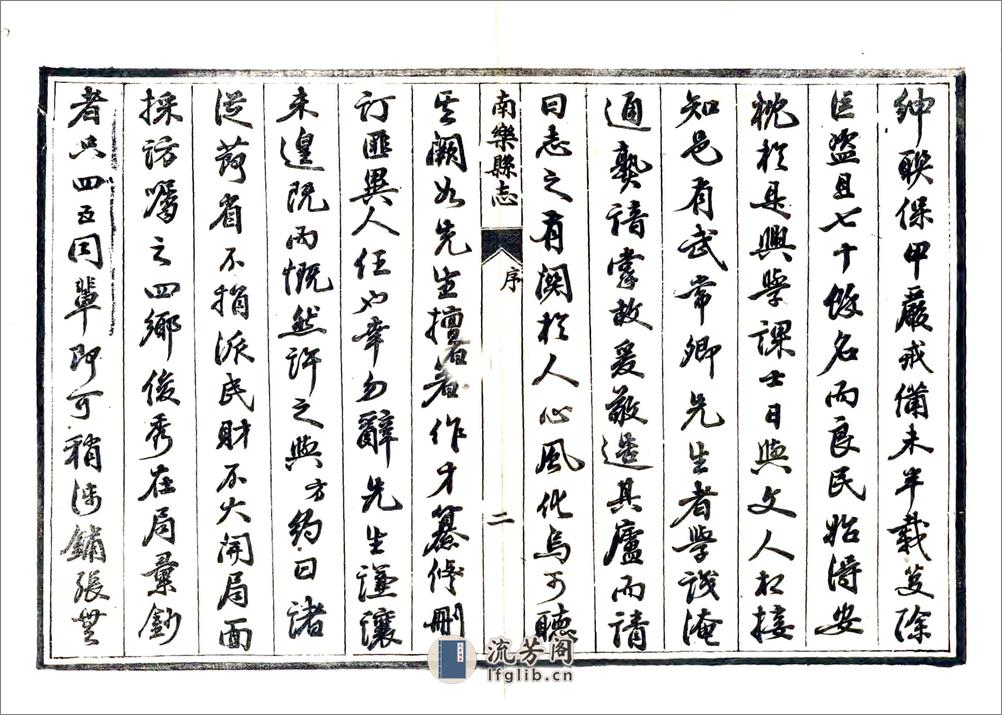 紳聯保甲嚴戒備未半載芟除
巨盜且七十餘名而良民始得安
枕於是興學課士日與文人相接
知邑有武常卿先生者學識淹
通藝諳掌故爰敬造其廬而請
曰志之有関於人心風化烏可聽
其闕如先生擅著作才纂修刪
訂匪異人任也幸勿辭先生謙讓
未遑既而慨然許之與方約曰諸
從苟省不捐派民財不大開局面
採訪囑之四鄉俊秀在局彙鈔
者只四五同輩即可稍涉鋪張無
南樂縣志
序
二
流芳阁
lfglib.cn